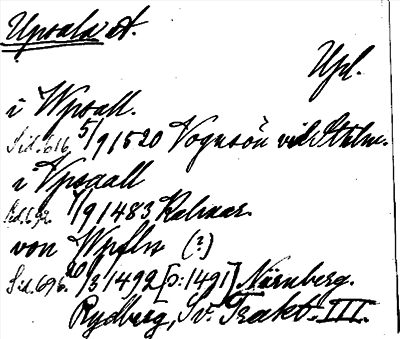 Upsala A.
Upl.
i Wpsall.
Sid. 616. 5/9 1520 Vognsön vid Sthlm.
i Vpsaall
Sid. 692. 7/9 1483 Kalmar.
von Wpfln (?)
Sid. 696. 20/3 1492 [o: 1491] Nürnberg.
Rydberg, Sv. Trakt. III.